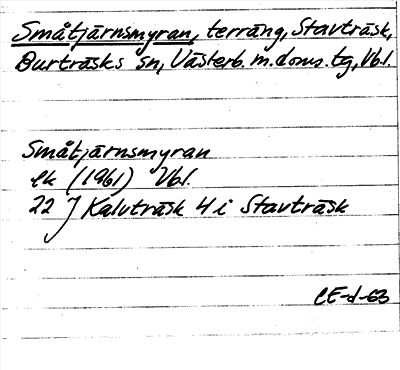 Småtjärnsmyran, terräng, Stavträsk,
Burträsks sn, Västerb. m. doms. tg, Vbl.
Småtjärnsmyran
Ek (1961) Vbl.
22 J Kalvträsk 4 i Stavträsk
CE-d-63